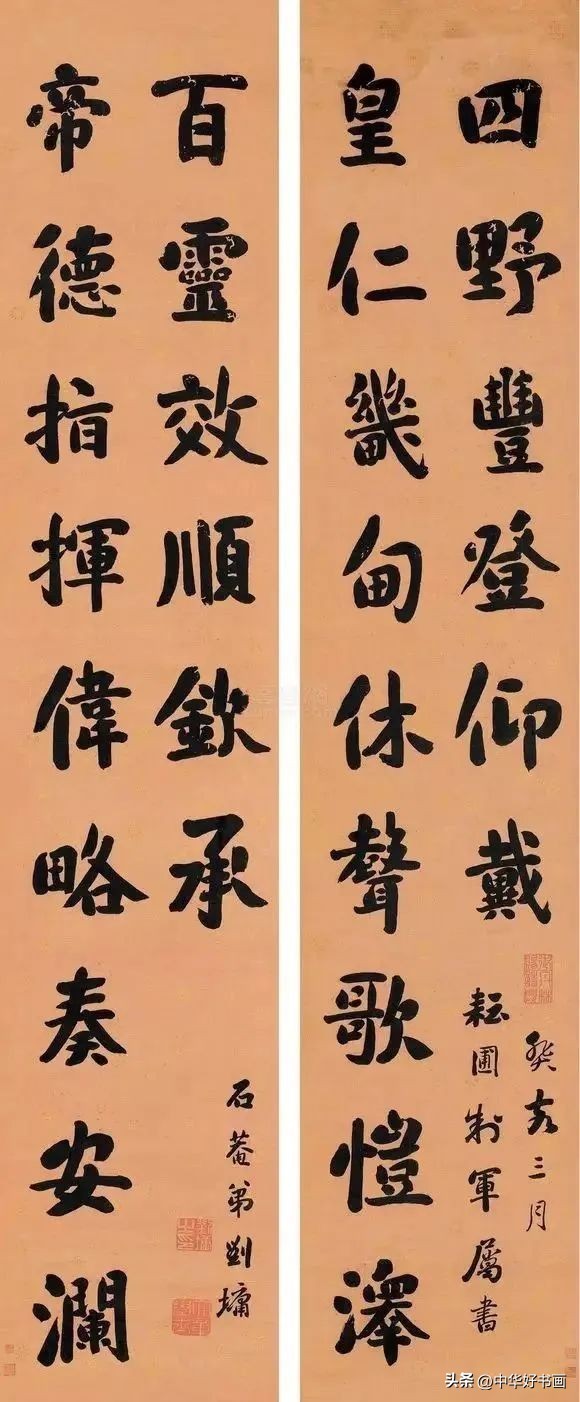 四野豐登仰戴
皇仁畿甸休聲歌愷澤
癸亥三月
耘圃制軍屬書
百靈效順欽承
帝德指揮偉略奏安瀾
石菴弟劉墉
头条 @中华好书画